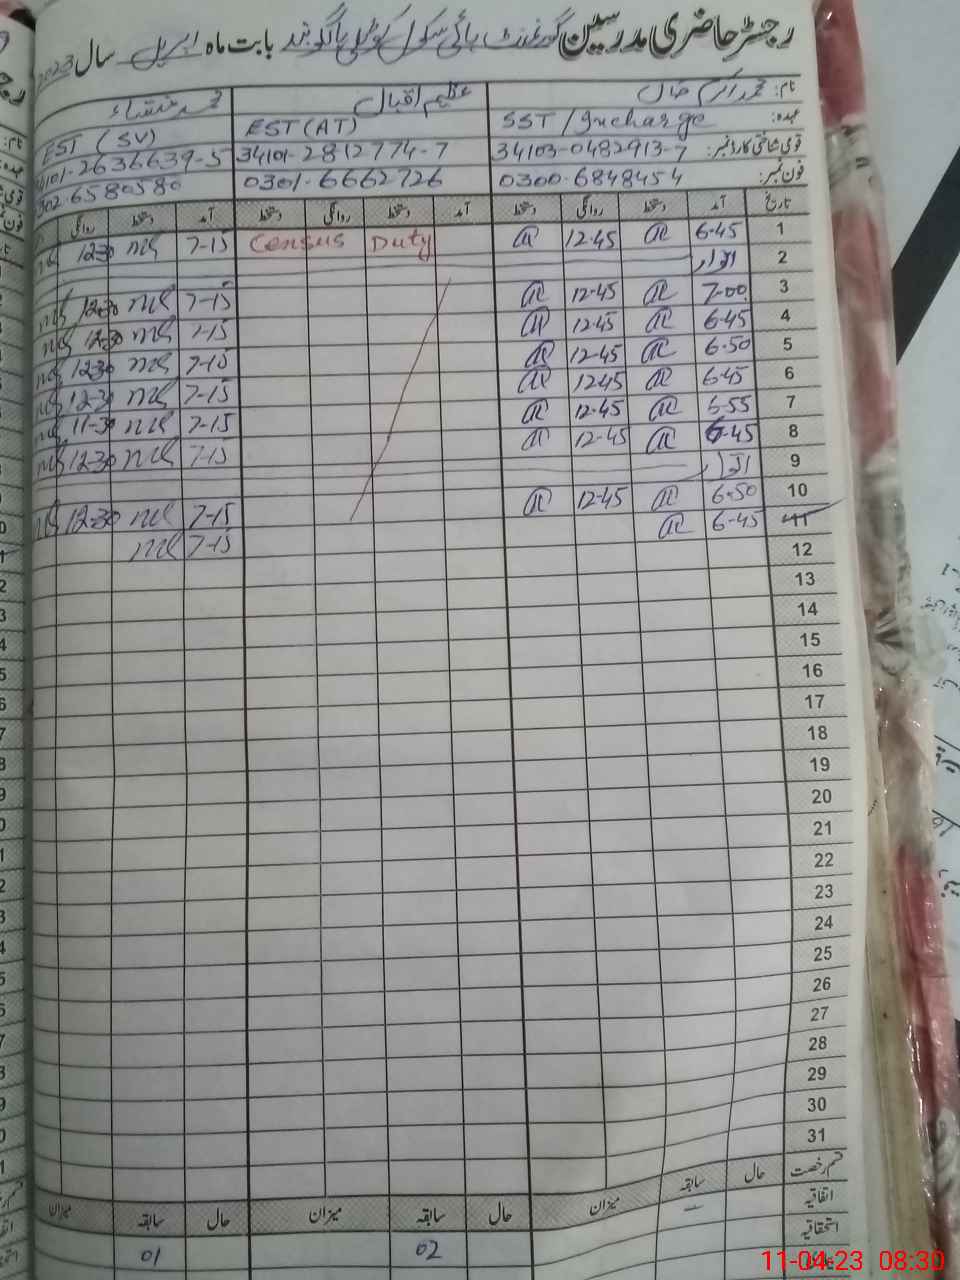 رجسٹر حاضری مدرسین گورنمنٹ ہائی سکول کوٹلی باگو بابت ماہ اپریل سال 2023
نام: محمد اکرم خان عظیم اقبال محمد منشاء
عہدہ: SST / Incharge EST (AT) EST (SV)
قومی شناختی کارڈ نمبر: 34103-0482913-7 34101-2812774-7 34101-2636639-5
فون نمبر: 0300-6848454 0301-6662726 302-6580580
تاریخ آمد دستخط روانگی دستخط آمد دستخط روانگی دستخط آمد دستخط روانگی
1 6-45 12-45 Census Duty 7-15 12-30
2 اتوار
3 7-00 12-45 7-15 12-30
4 6-45 12-45 7-15 12-30
5 6-50 12-45 7-15 12-30
6 6-45 12-45 7-15 12-30
7 6-55 12-45 7-15 11-30
8 6-45 12-45 7-15 12-30
9 اتوار
10 6-50 12-45 7-15 12-30
11 6-45 7-15
12
13
14
15
16
17
18
19
20
21
22
23
24
25
26
27
28
29
30
31
قسم رخصت حال سابقہ میزان حال سابقہ میزان حال سابقہ میزان
اتفاقیہ
استحقاقیہ 02 01
11-04-23 08:30